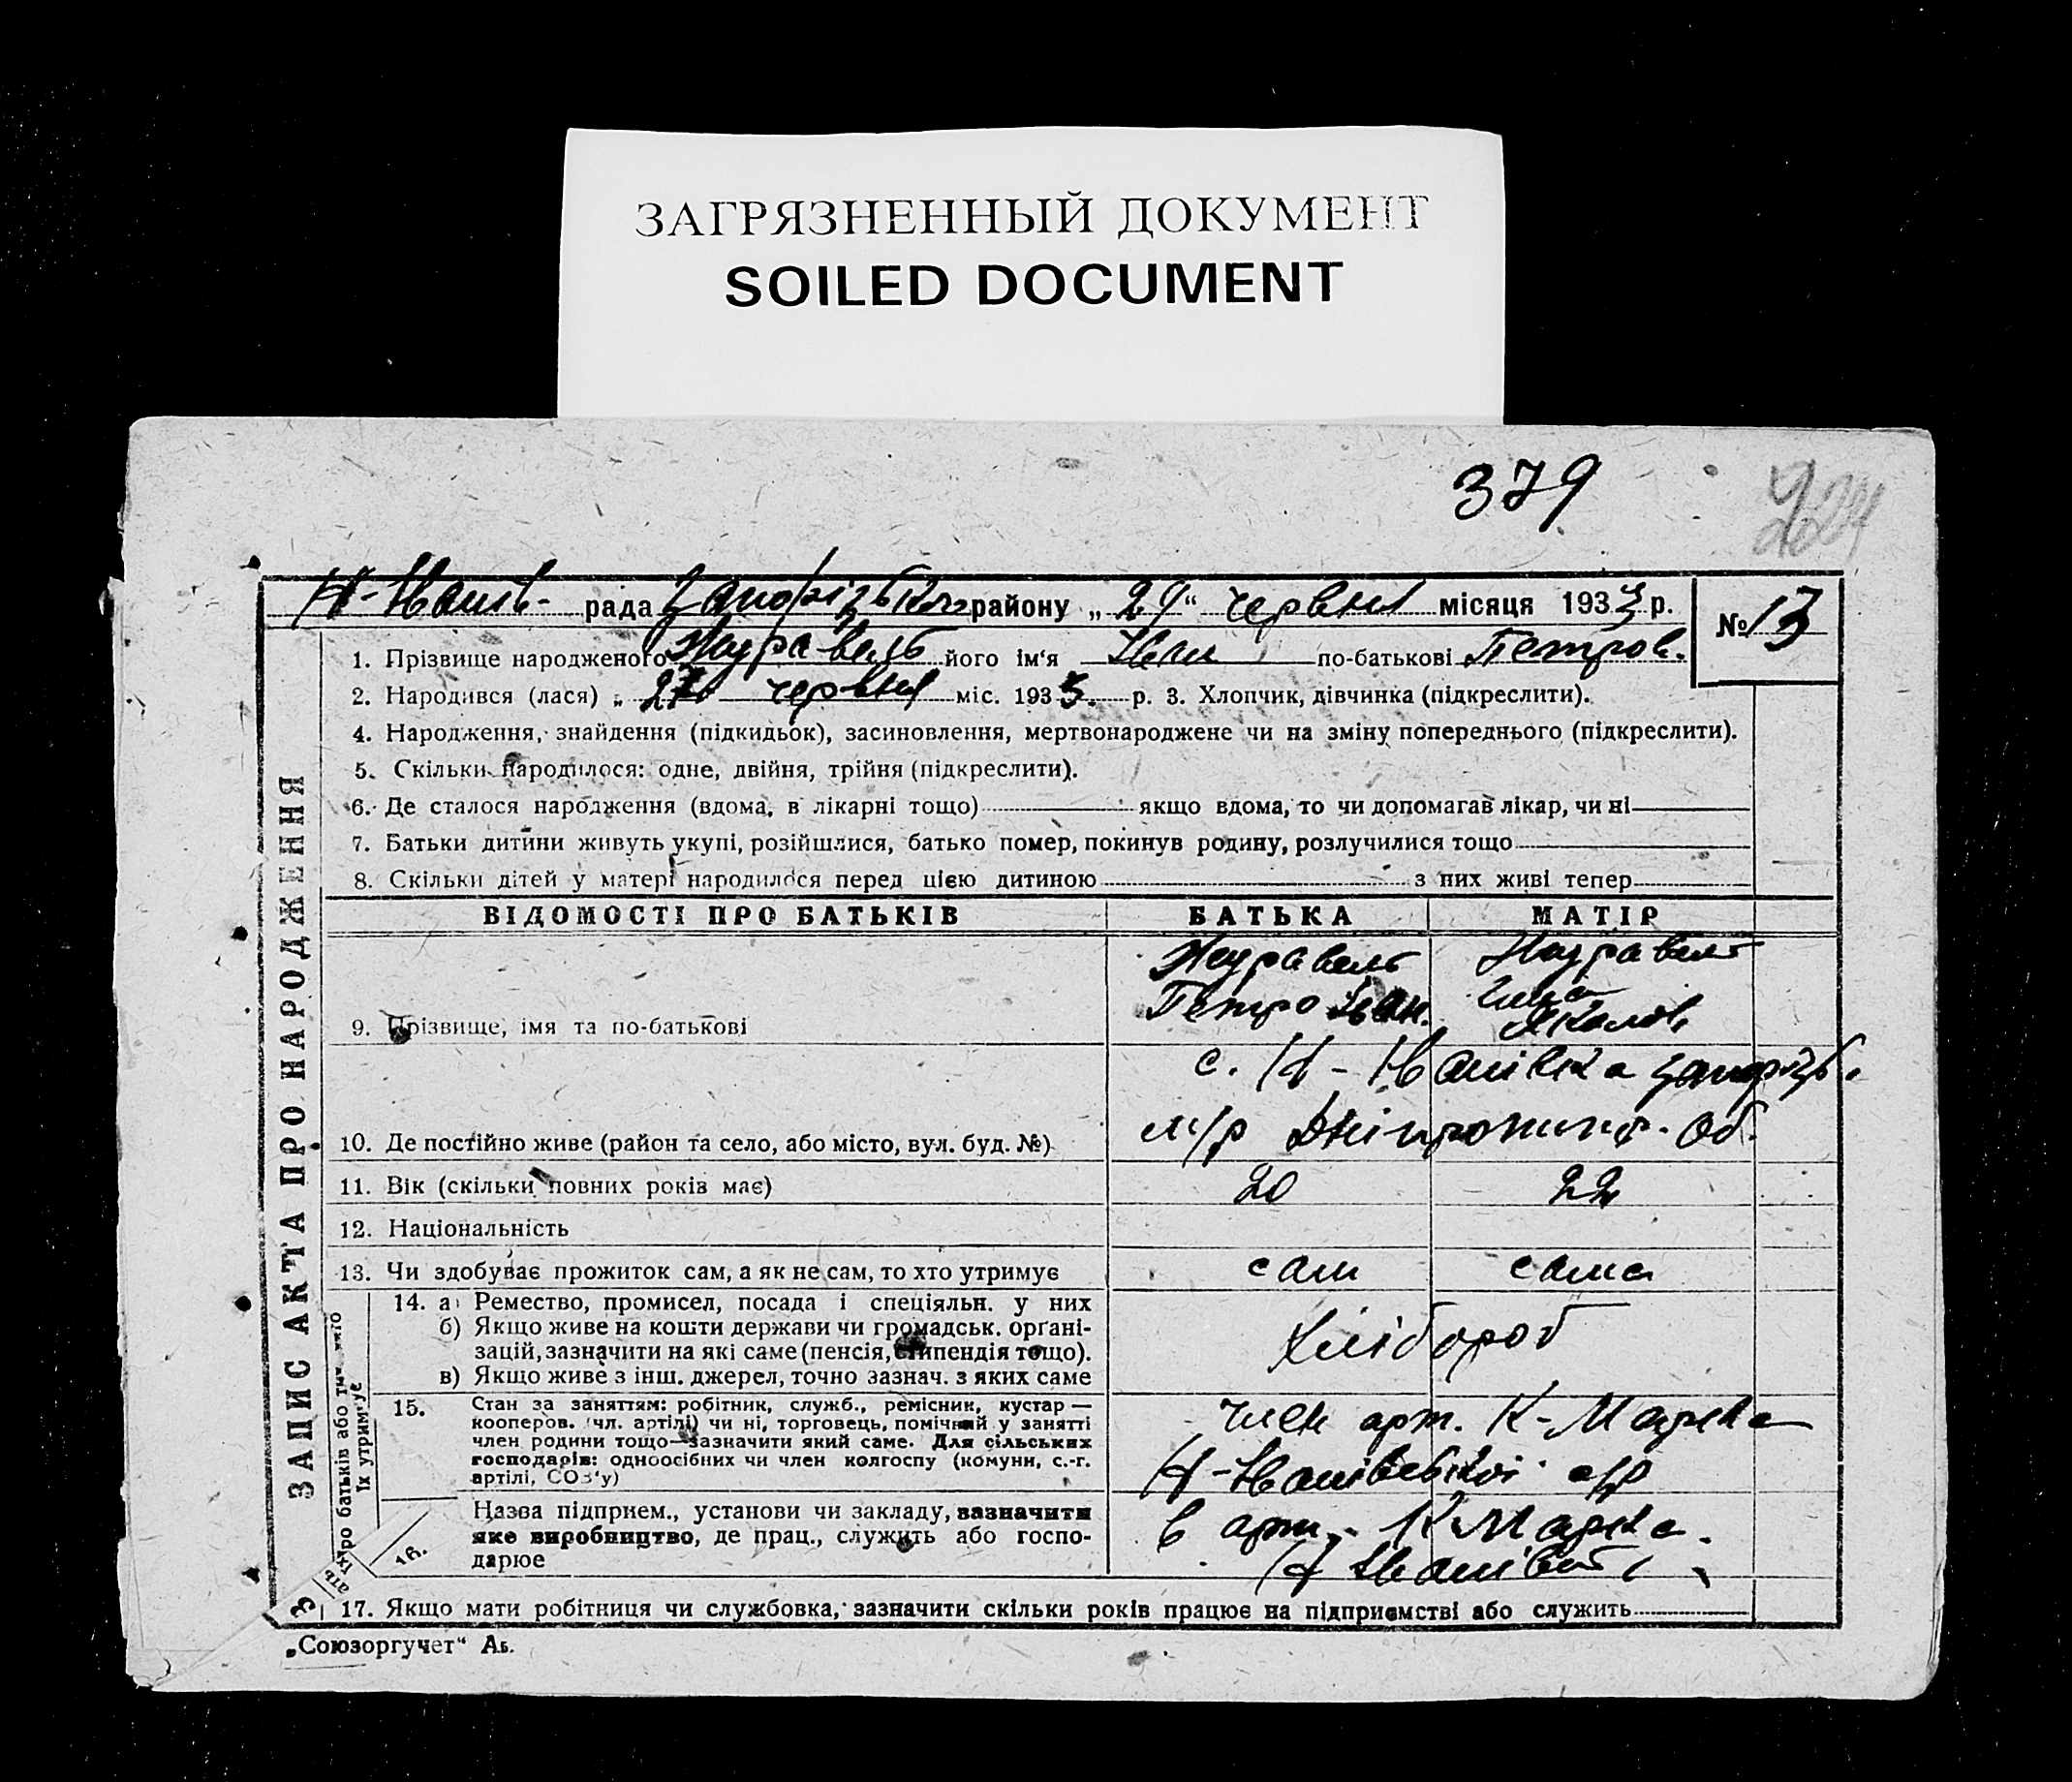 ЗАГРЯЗНЕННЫЙ ДОКУМЕНТ
SOILED DOCUMENT
379
Н-Іванів- рада Запорізького району „29“ червня місяця 1933 р.
№ 13
1. Прізвище народженого Журавель його ім'я Іван по-батькові Петров.
2. Народився (лася) „27 червня міс. 1933. р. 3. Хлопчик, дівчинка (підкреслити).
4. Народження, знайдення (підкидьок), засиновлення, мертвонароджене чи на зміну попереднього (підкреслити).
5. Скільки народилося: одне, двійня, трійня (підкреслити).
6. Де сталося народження (вдома, в лікарні тощо) якщо вдома, то чи допомагав лікар, чи ні
7. Батьки дитини живуть укупі, розійшлися, батько помер, покинув родину, розлучилися тощо
8. Скільки дітей у матері народилося перед цією дитиною з них живі тепер
ЗАПИС АКТА ПРО НАРОДЖЕННЯ
ВІДОМОСТІ ПРО БАТЬКІВ БАТЬКА МАТІР
Журавель Журавель
Петро Іван.
9. Прізвище, імя та по-батькові
с. Н-Іванівка Запорізь.
м/р Дніпропетр. Об.
10. Де постійно живе (район та село, або місто, вул. буд. №)
11. Вік (скільки повних років має) 20 22
12. Національність
13. Чи здобуває прожиток сам, а як не сам, то хто утримує сам сама
14. а) Ремество, промисел, посада і спеціяльн. у них
б) Якщо живе на кошти держави чи громадськ. органі-
зацій, зазначити на які саме (пенсія, стипендія тощо).
в) Якщо живе з інш. джерел, точно зазнач. з яких саме
Хлібороб
15. Стан за заняттям: робітник, служб., ремісник, кустар —
кооперов. (чл. артілі) чи ні, торговець, помічний у занятті
член родини тощо—зазначити який саме. Для сільських
господарів: одноосібних чи член колгоспу (комуни, с.-г.
артілі, СОЗ'у)
член арт. К-Маркса
Н-Іванівської с/р
16. Назва підприєм., установи чи закладу, зазначити
яке виробництво, де прац., служить або госпо-
дарює
в арт. К Маркса.
Н Іванівці
17. Якщо мати робітниця чи службовка, зазначити скільки років працює на підприємстві або служить
„Союзоргучет“